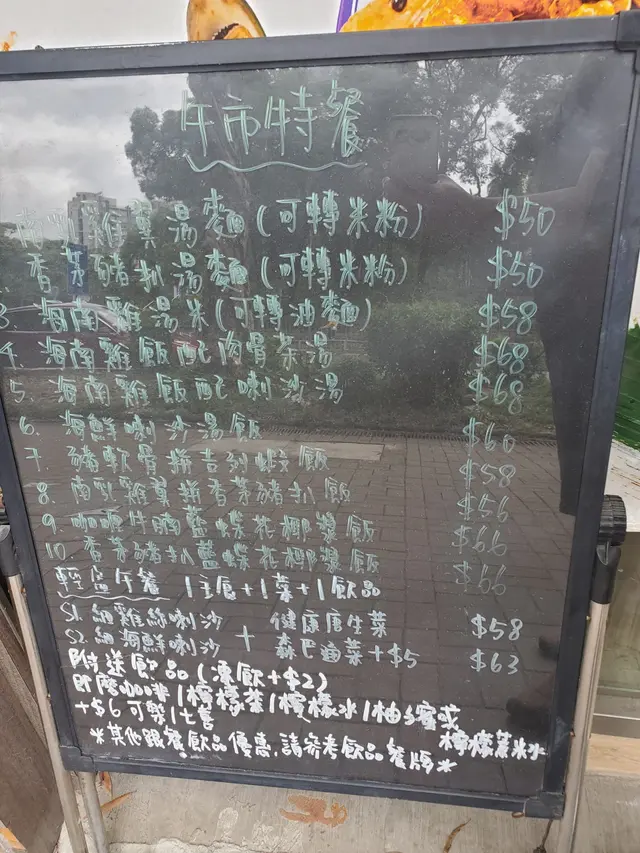 午市特餐
南乳雞翼湯麵(可轉米粉) $50
香茅豬扒湯麵(可轉米粉) $50
3. 海南雞湯米(可轉油麵) $58
4. 海南雞飯配肉骨茶湯 $68
5. 海南雞飯配喇沙湯 $68
6. 海鮮喇沙湯飯 $60
7 豬軟骨拼吉列蝦飯 $58
8. 南乳雞翼拼香茅豬扒飯 $56
9 咖喱牛腩藍蝶花椰漿飯 $66
10 香茅豬扒藍蝶花椰漿飯 $66
輕盈午餐 1主食+1菜+1飲品
S1. 細雞絲喇沙 健康唐生菜 $58
S2. 細海鮮喇沙 + 森巴通菜+$5 $63
附送飲品(凍飲+$2)
即磨咖啡/檸檬茶/檸檬水/柚子蜜或
檸檬薏米水
+$6可
*其他跟餐飲品優惠,請參考飲品餐牌*